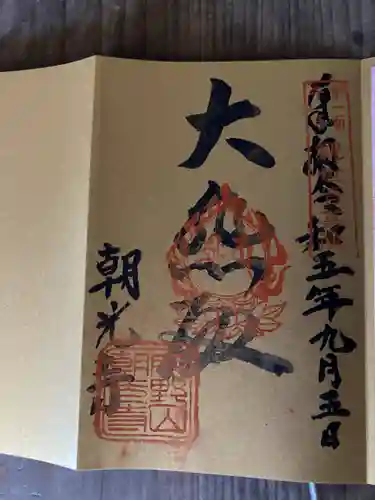 奉拝 令和五年九月五日
大悲殿
朝光寺